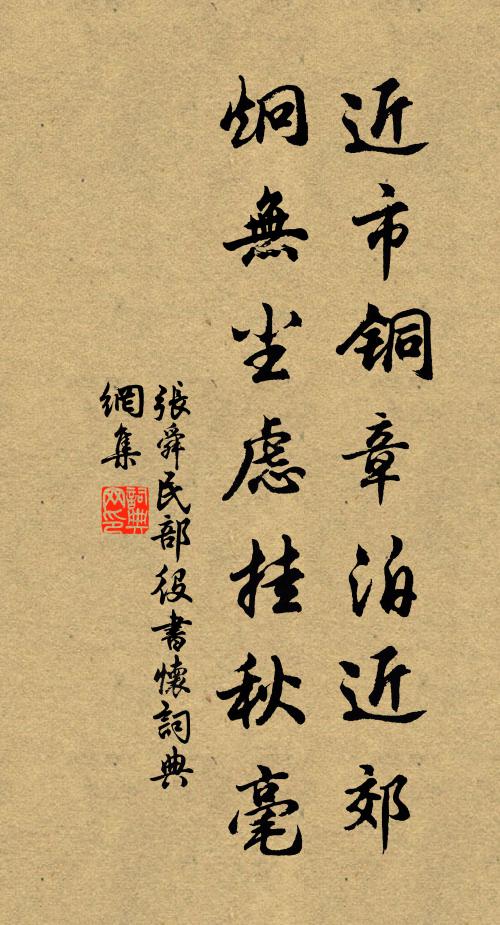 近市銅章泊近郊
炯無尘慮挂秋毫
張舜民部役書懷詞典
網集
詞典
网印